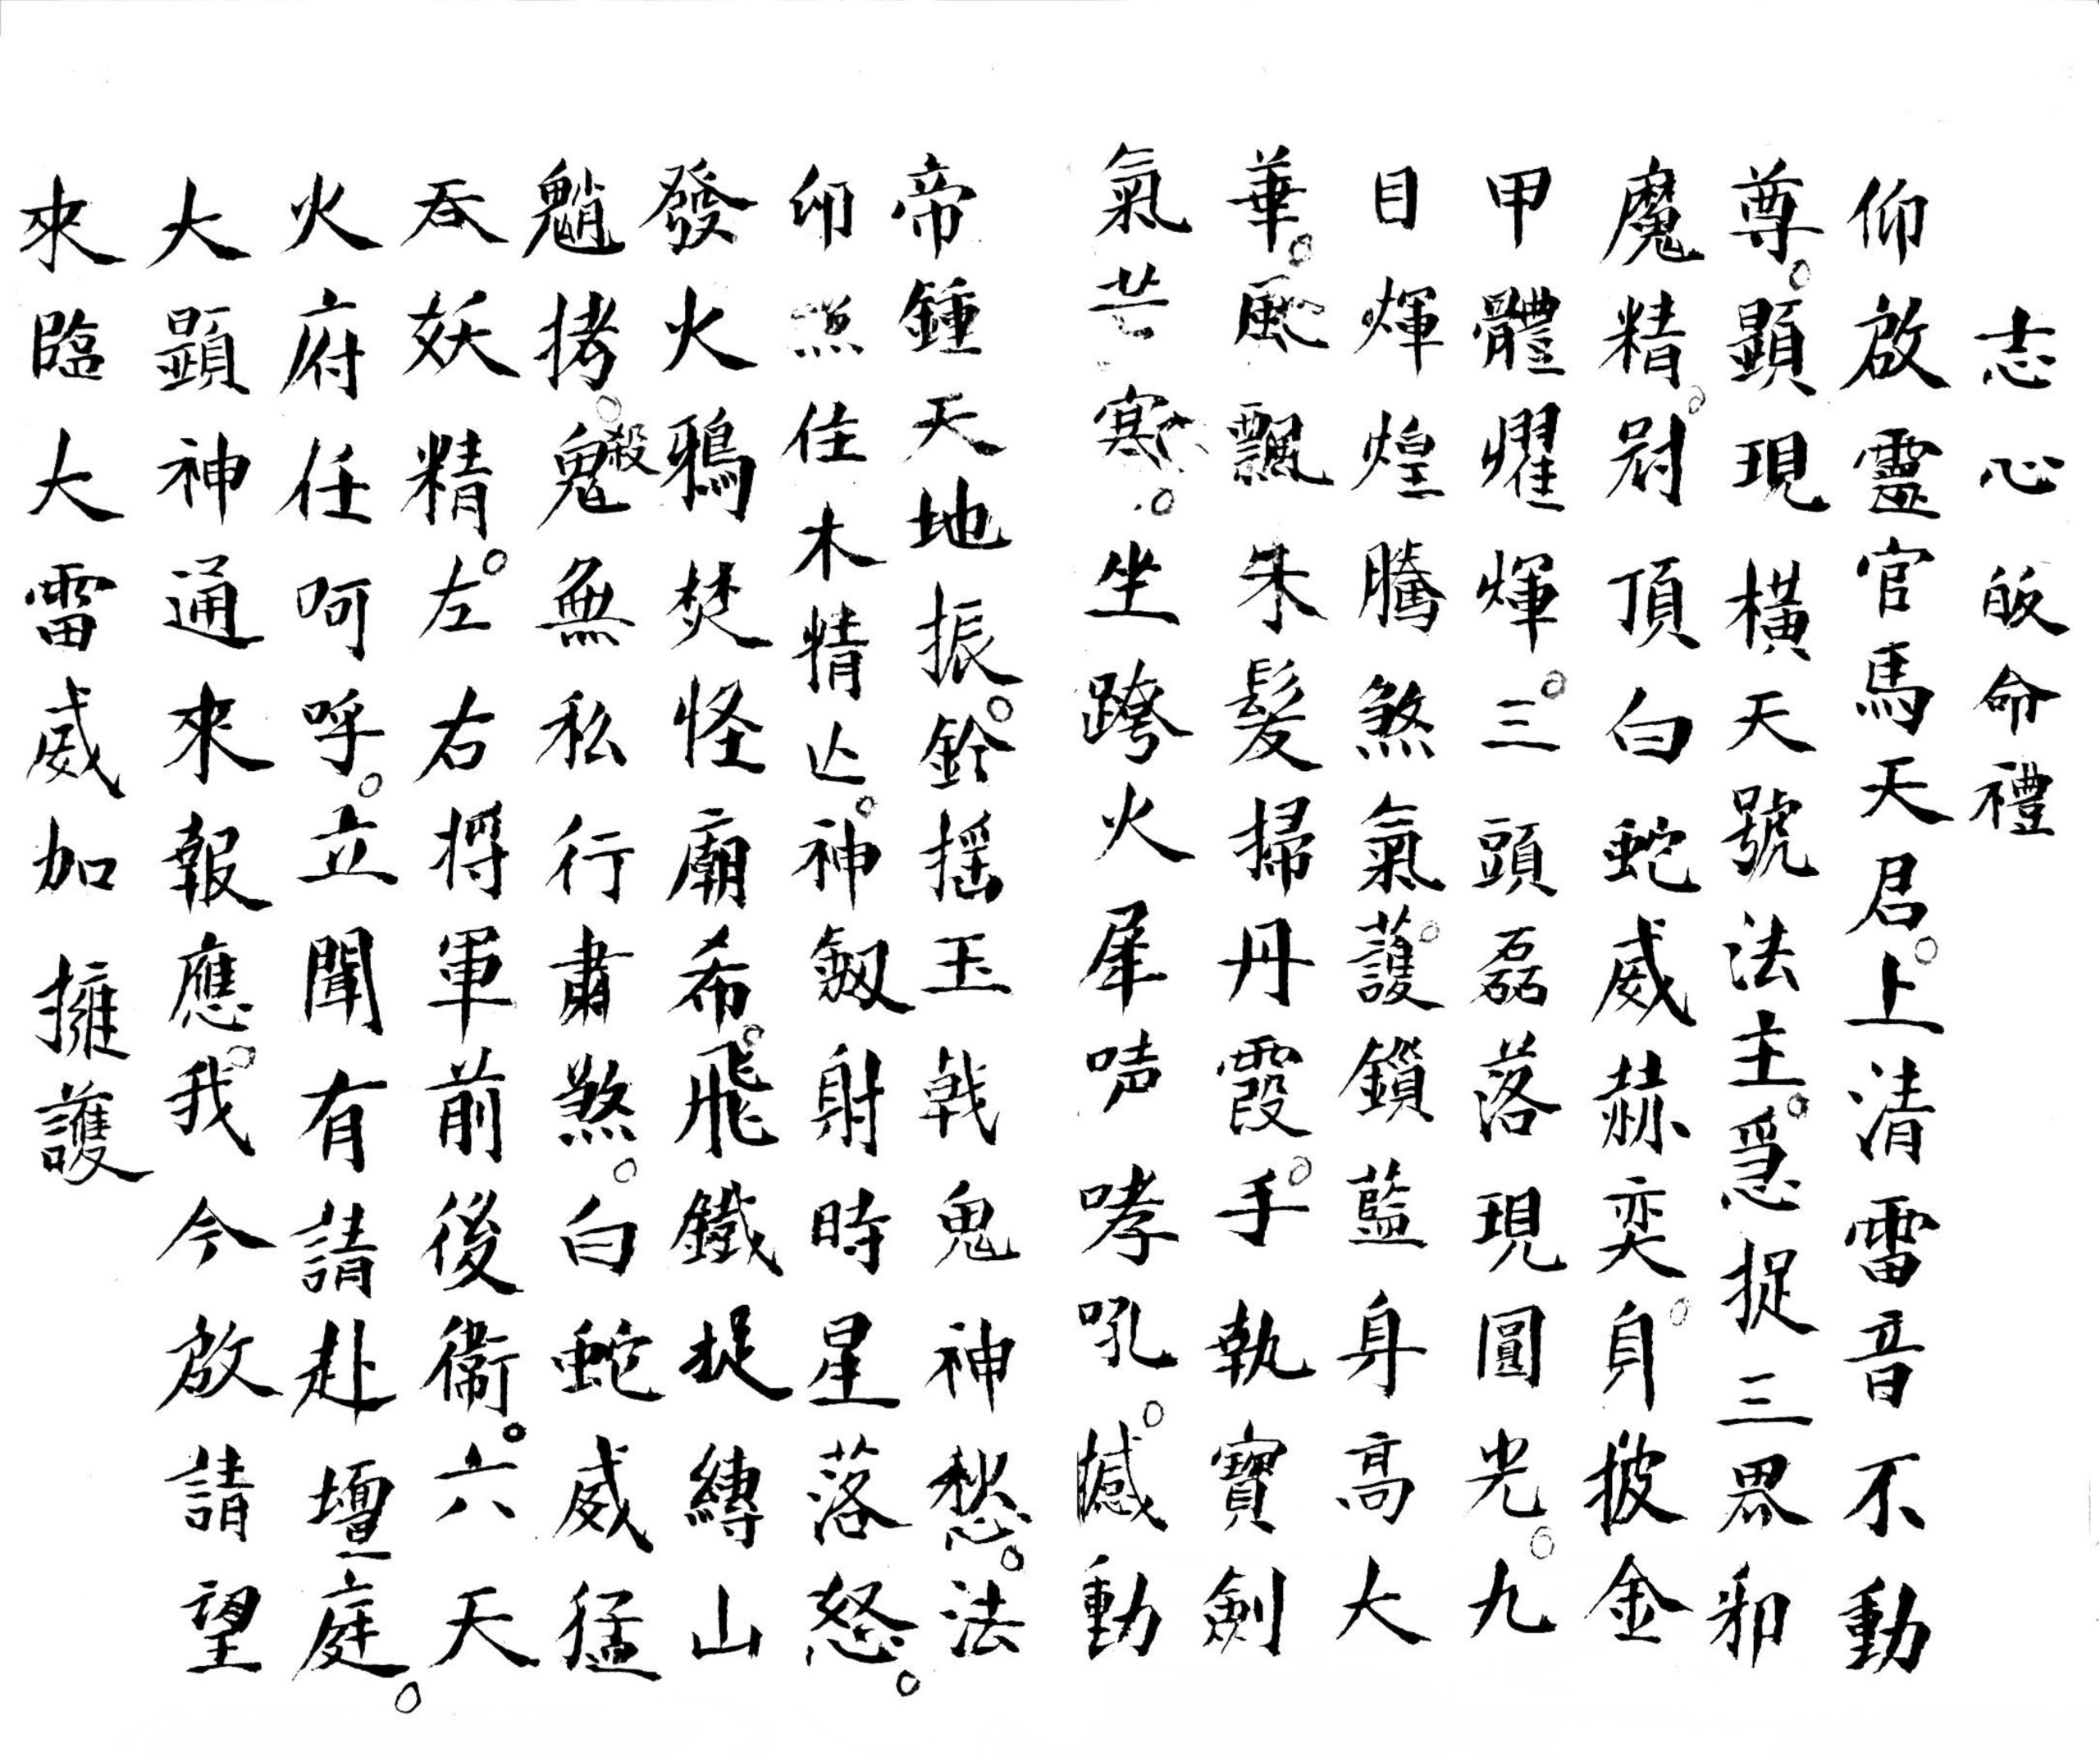 志心皈命禮
仰啟靈官馬天君。上清雷音不動
尊。顯現橫天號法主。爲捉三界邪
魔精。冠頂白蛇威赫奕。身披金
甲體耀輝。三頭磊落現圓光。九
目煇煌騰煞氣。護鎖藍身高大
華。風飄朱髮掃丹霞。手執寶劍
氣芒寒。坐跨火犀声哮吼。撼動
帝鍾天地振。鈴搖玉戟鬼神愁。法
印照住木精亡。神劔射時星落怒。
發火鴉焚怪廟希。飛鐵捉縛山
魈拷。鬼殺無私行肅煞。白蛇威猛
吞妖精。左右將軍前後衞。六天
火府任呵呼。立聞有請赴壇庭。
大顯神通來報應。我今啟請望
來臨大雷威加擁護